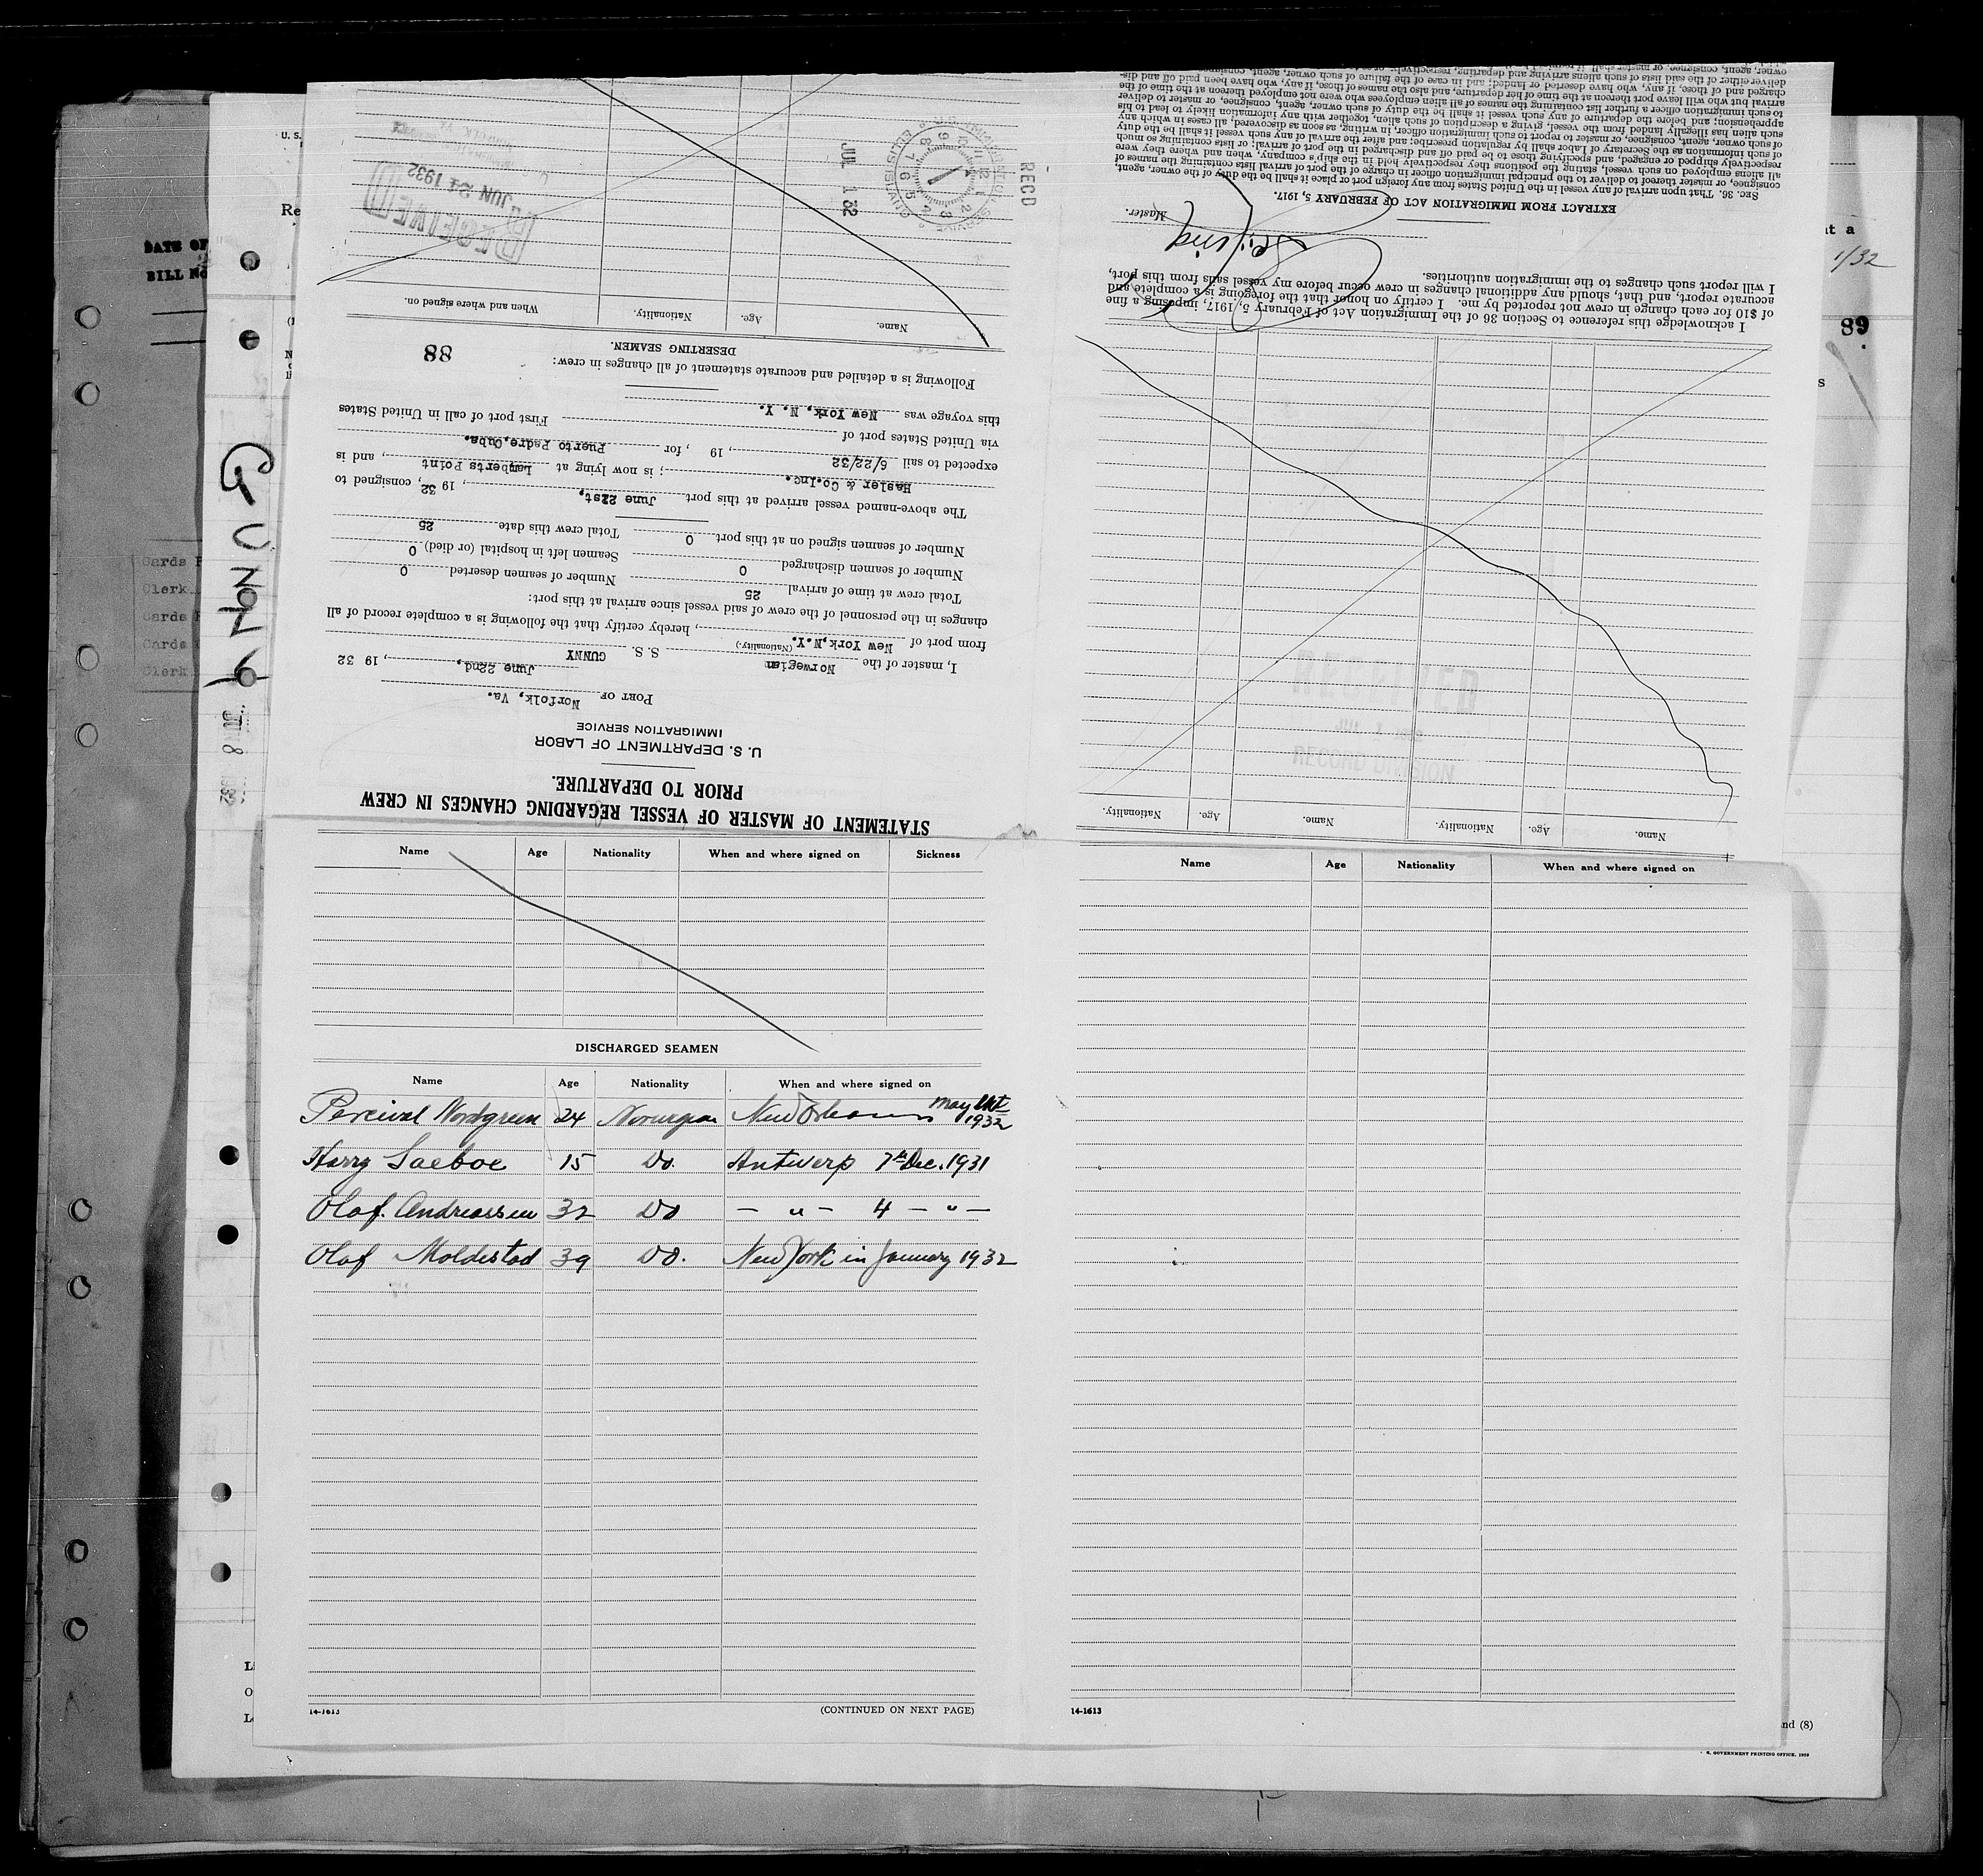 GUNNY
JUL 8 1932
U. S.
Re
DATE OF
BILL No
Cards
Clerk
Cards
Cards
Clerk
nt a
1/32
89
s
STATEMENT OF MASTER OF VESSEL REGARDING CHANGES IN CREW
PRIOR TO DEPARTURE.
U. S. DEPARTMENT OF LABOR
IMMIGRATION SERVICE
PORT OF Norfolk, Va.
June 22nd, 19 32
I, master of the Norwegian S. S. GUNNY
(Nationality.)
from port of New York, N.Y., hereby certify that the following is a complete record of all
changes in the personnel of the crew of said vessel since arrival at this port:
Total crew at time of arrival 25 Number of seamen deserted 0
Number of seamen discharged 0 Seamen left in hospital (or died) 0
Number of seamen signed on at this port 0 Total crew this date 25
The above-named vessel arrived at this port June 21st, 19 32, consigned to
Hasler & Co. Inc.; is now lying at Lamberts Point, and is
expected to sail 6/22/32, 19 , for Puerto Padre, Cuba.
via United States port of First port of call in United States
this voyage was New York, N. Y.
Following is a detailed and accurate statement of all changes in crew:
88
DESERTING SEAMEN.
Name. Age. Nationality. When and where signed on.
RECEIVED
JUN 24 1932
REC'D
JUL 1 32
Name. Age. Nationality. Name. Age. Nationality.
RECEIVED
JUL 1 1932
RECORD DIVISION
I acknowledge this reference to Section 36 of the Immigration Act of February 5, 1917, imposing a fine
of $10 for each change in crew not reported by me. I certify on honor that the foregoing is a complete and
accurate report, and that, should any additional changes in crew occur before my vessel sails from this port,
I will report such changes to the immigration authorities.
Master.
EXTRACT FROM IMMIGRATION ACT OF FEBRUARY 5, 1917.
Sec. 36. That upon arrival of any vessel in the United States from any foreign port or place it shall be the duty of the owner, agent,
consignee, or master thereof to deliver to the principal immigration officer in charge of the port of arrival lists containing the names of
all aliens employed on such vessel, stating the positions they respectively hold in the ship's company, when and where they were
respectively shipped or engaged, and specifying those to be paid off and discharged in the port of arrival; or lists containing so much
of such information as the Secretary of Labor shall by regulation prescribe; and after the arrival of any such vessel it shall be the duty
of such owner, agent, consignee, or master to report to such immigration officer, in writing, as soon as discovered, all cases in which any
such alien has illegally landed from the vessel, giving a description of such alien, together with any information likely to lead to his
apprehension; and before the departure of any such vessel it shall be the duty of such owner, agent, consignee, or master to deliver
to such immigration officer a further list containing the names of all alien employees who were not employed thereon at the time of the
arrival but who will leave port thereon at the time of her departure, and also the names of those, if any, who have been paid off and dis-
charged and of those, if any, who have deserted or landed; and in case of the failure of such owner, agent, consignee, or master to
deliver either of the said lists of such aliens arriving and departing, respectively,
Name Age Nationality When and where signed on Sickness
DISCHARGED SEAMEN
Name Age Nationality When and where signed on
Percival Nordgreen 24 Norwegian New Orleans May 1932
Harry Saeboe 15 Do. Antwerp 7th Dec. 1931
Olaf. Andreassen 32 Do — " — 4 — " —
Olaf Moldestad 39 Do. New York in January 1932
14-1613 (CONTINUED ON NEXT PAGE)
Name Age Nationality When and where signed on
14-1613
nd (8)
GOVERNMENT PRINTING OFFICE